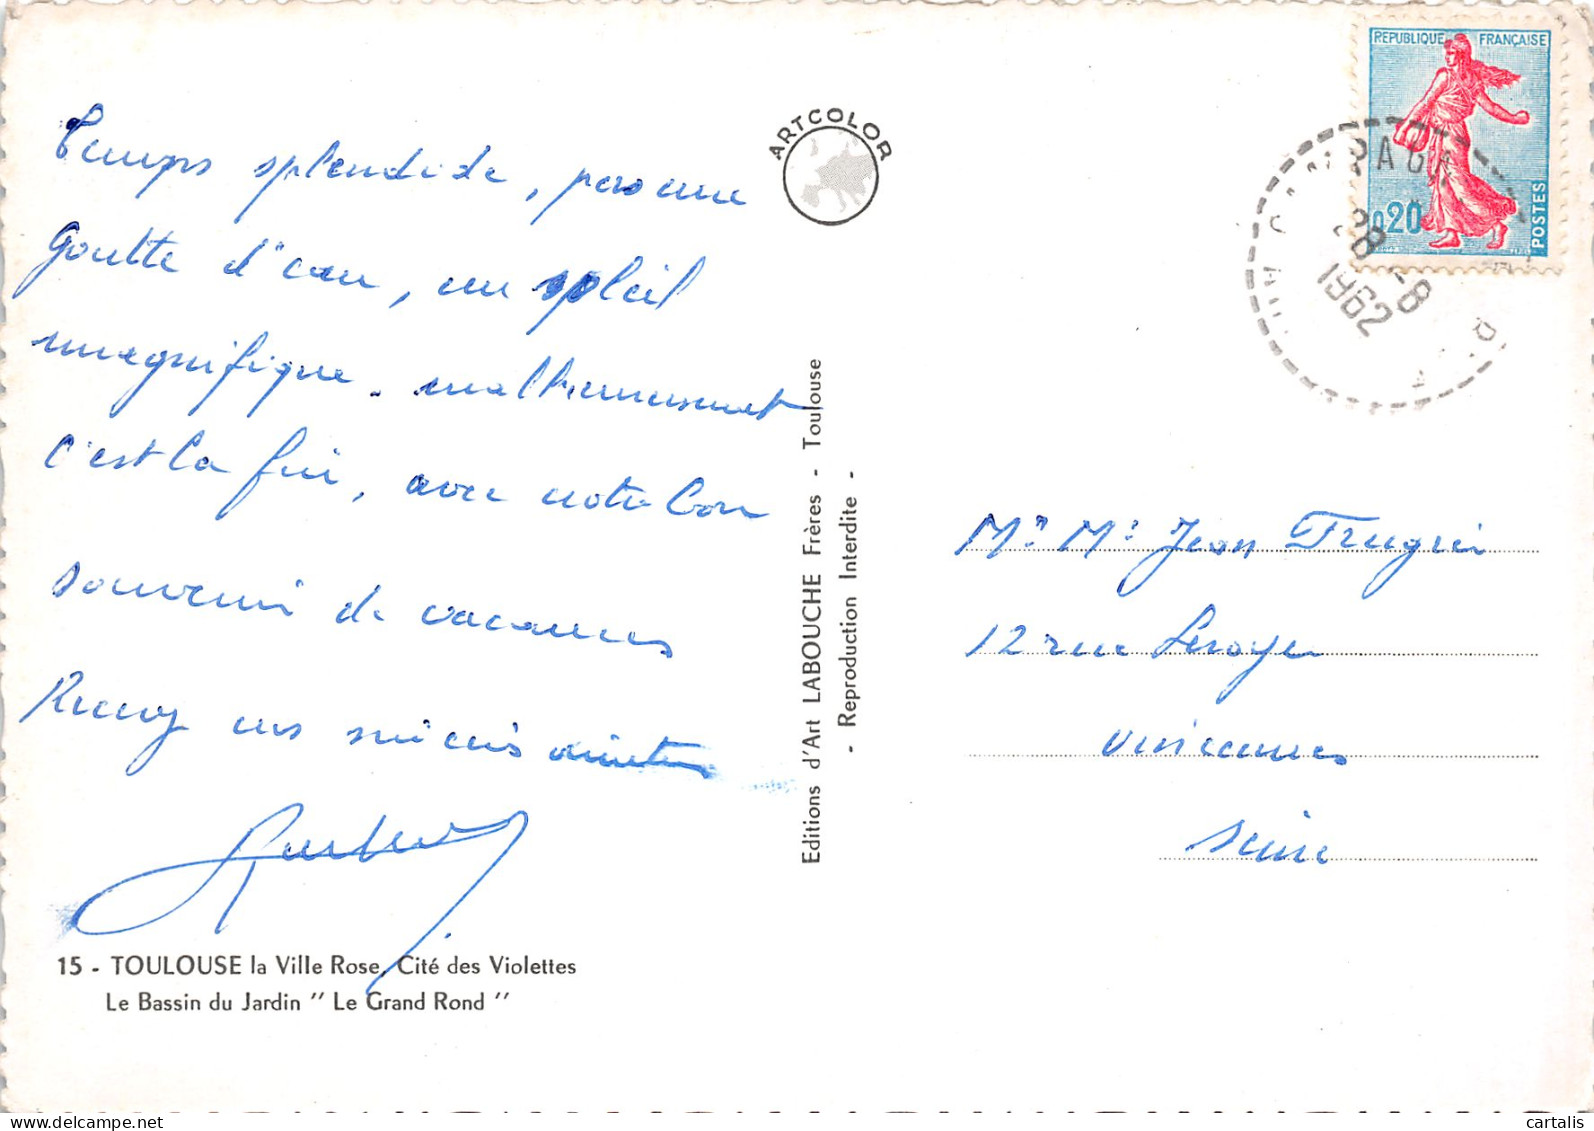 Temps splendide, pas une
goutte d'eau, un soleil
magnifique. malheureusement
c'est la fin, avec notre bon
souvenir de vacances
Recevez nos
15 - TOULOUSE la Ville Rose, Cité des Violettes
Le Bassin du Jardin " Le Grand Rond "
ARTCOLOR
Editions d'Art LABOUCHE Frères - Toulouse
- Reproduction Interdite -
REPUBLIQUE FRANÇAISE
0,20
POSTES
28 -8
1962
Mr Me Jean
12 rue Leroyer
Vincennes
Seine
cartalis